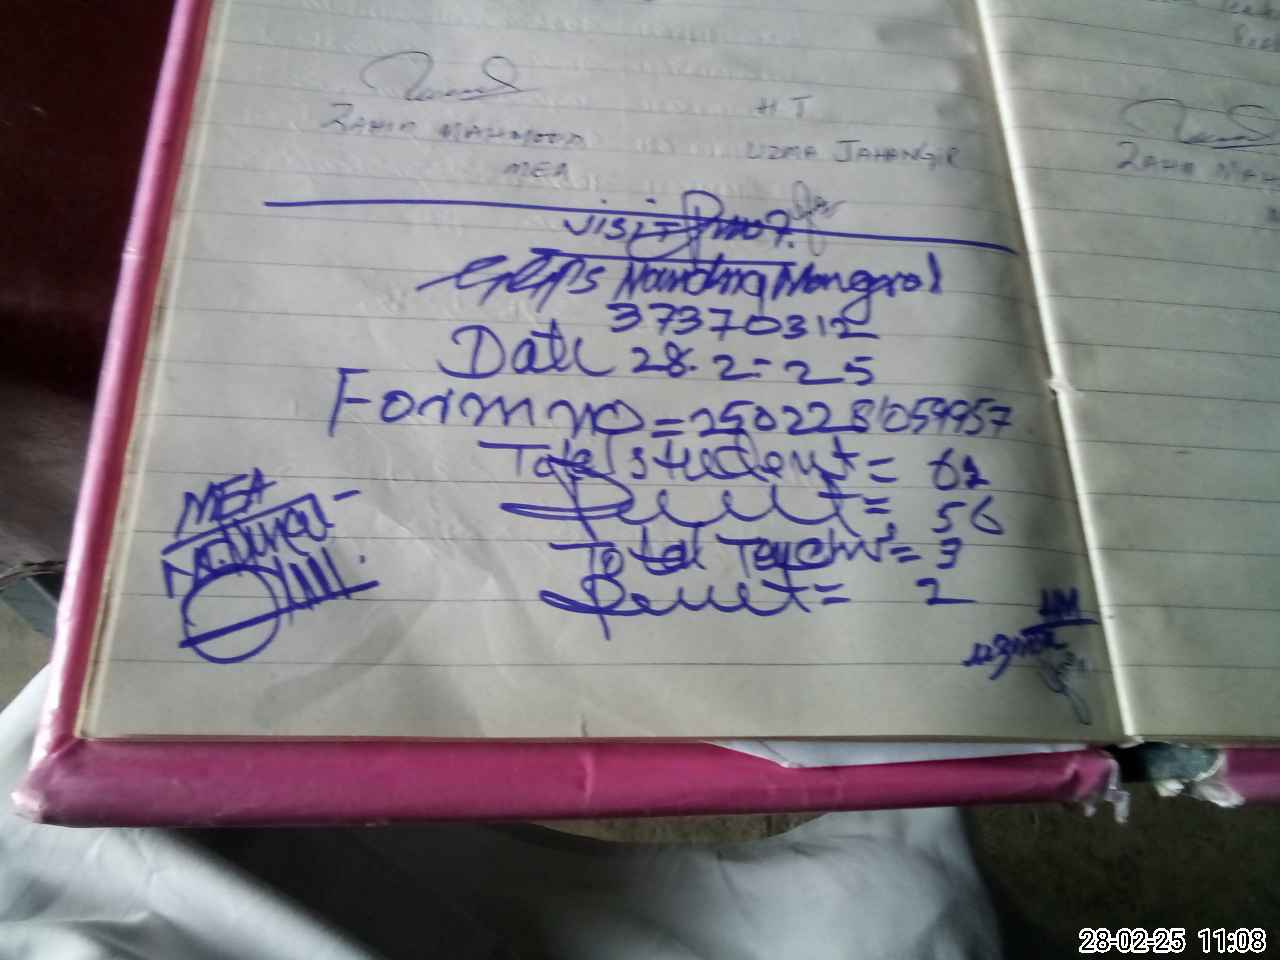 ZAHIR MAHMOOD
MEA
H.T
UZMA JAHANGIR
visit
Mangral
37370312
Date 28.2-25
Form no = 2502281059957
Total student = 62
Present = 56
Total Teacher = 3
Present = 2
MEA
HM
uzma
ZAHIR MAH
28-02-25 11:08